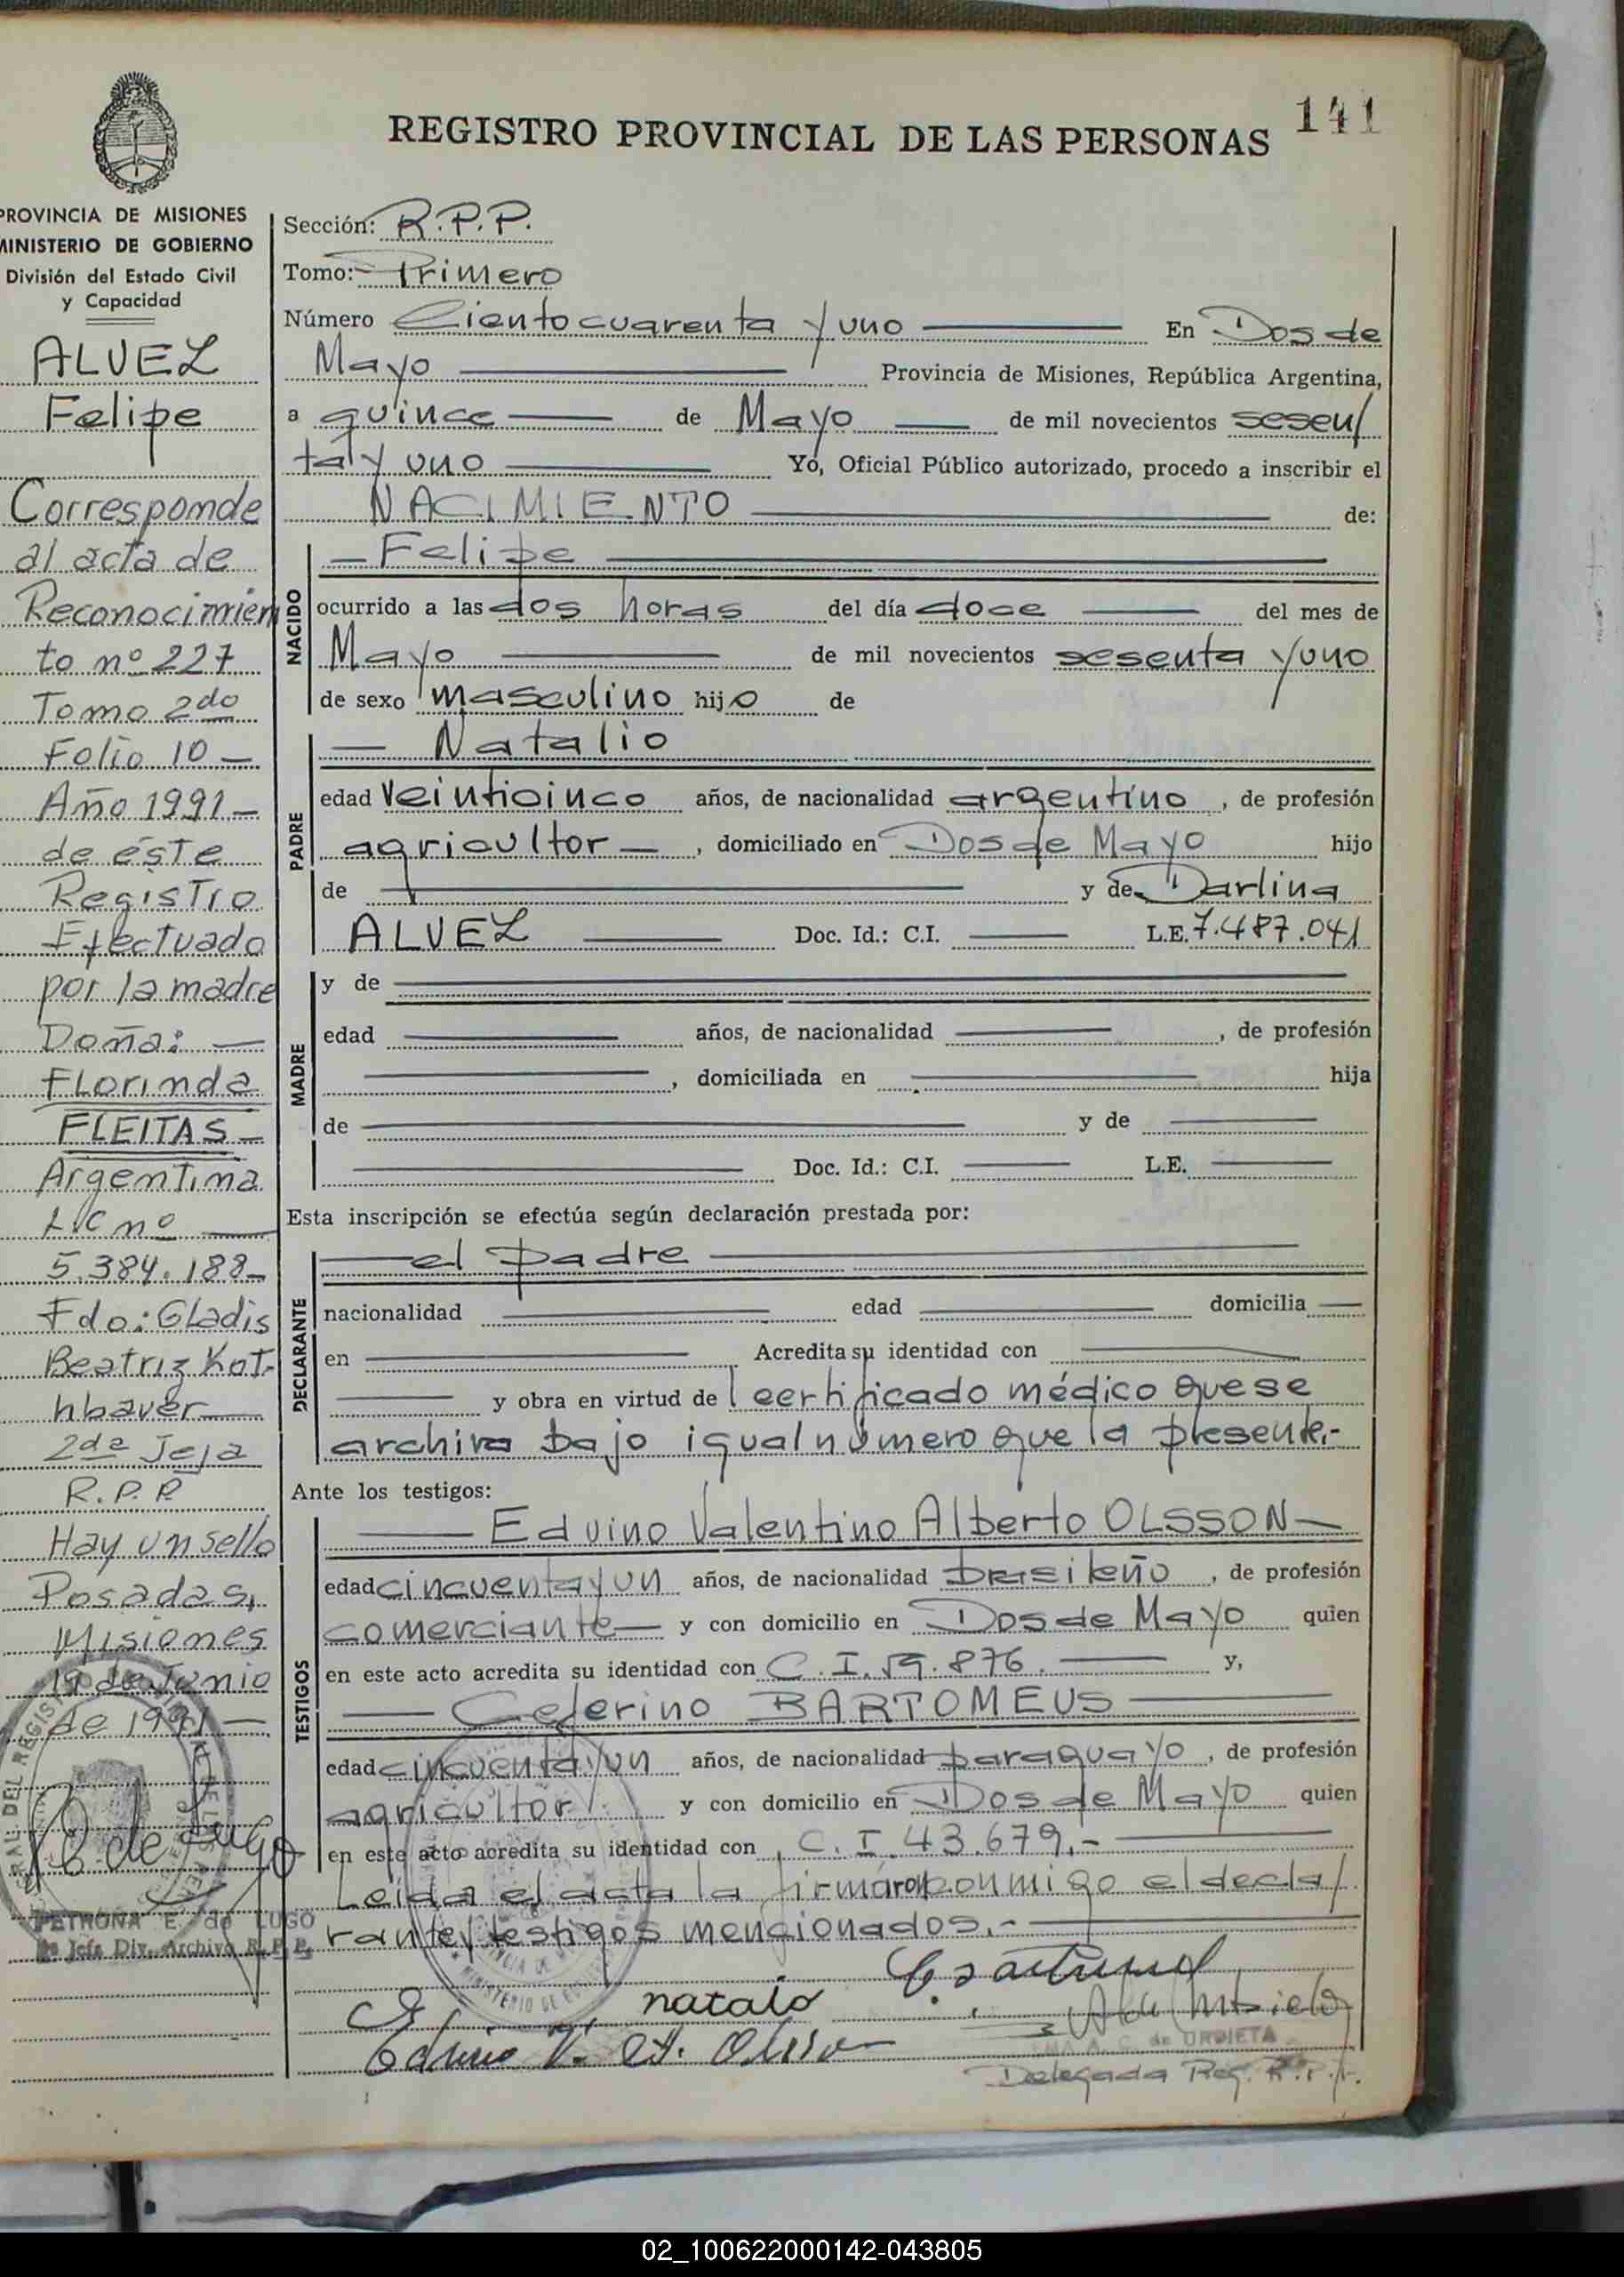 141
REGISTRO PROVINCIAL DE LAS PERSONAS
PROVINCIA DE MISIONES
MINISTERIO DE GOBIERNO
División del Estado Civil
y Capacidad
ALVEZ
Felipe
Corresponde
al acta de
Reconocimien
to nº 227
Tomo 2do
Folio 10 —
Año 1991 —
de éste
Registro
Efectuado
por la madre
Doña: —
Florinda
FLEITAS —
Argentina
L/C nº —
5.384.188 —
Fdo: Gladis
Beatriz Kot-
hbaver —
2da Jefa
R.P.P.
Hay un sello
Posadas,
Misiones
19 de Junio
de 1991 —
PETRONA E. de LUGO
Jefa Div. Archivo R.P.P.
Sección: R.P.P.
Tomo: Primero
Número Ciento cuarenta y uno — En Dos de
Mayo — Provincia de Misiones, República Argentina,
a quince — de Mayo — de mil novecientos sesen/
ta y uno — Yo, Oficial Público autorizado, procedo a inscribir el
NACIMIENTO — de:
NACIDO
— Felipe —
ocurrido a las dos horas del día doce — del mes de
Mayo — de mil novecientos sesenta y uno
de sexo masculino hijo de
PADRE
— Natalio
edad veinticinco años, de nacionalidad argentino, de profesión
agricultor —, domiciliado en Dos de Mayo hijo
de — y de Darlina
ALVEZ — Doc. Id.: C.I. — L.E. 7.487.041
MADRE
y de —
edad — años, de nacionalidad —, de profesión
—, domiciliada en — hija
de — y de —
— Doc. Id.: C.I. — L.E. —
Esta inscripción se efectúa según declaración prestada por:
DECLARANTE
— el padre —
nacionalidad — edad — domicilia —
en — Acredita su identidad con —
— y obra en virtud de certificado médico que se
archiva bajo igual número que la presente.-
Ante los testigos:
TESTIGOS
— Edvino Valentino Alberto OLSSON —
edad cincuenta y un años, de nacionalidad brasileño, de profesión
comerciante — y con domicilio en Dos de Mayo quien
en este acto acredita su identidad con C.I. 59.876. — y,
— Ceferino BARTOMEUS —
edad cincuenta y un años, de nacionalidad paraguayo, de profesión
agricultor y con domicilio en Dos de Mayo quien
en este acto acredita su identidad con C.I. 43.679.- —
Leida el acta la firmaron conmigo el decla/
rante y testigos mencionados.- —
natalo
Edvino V. A. Olsson
de URDIETA
Delegada Reg. R.P.P.
02_100622000142-043805